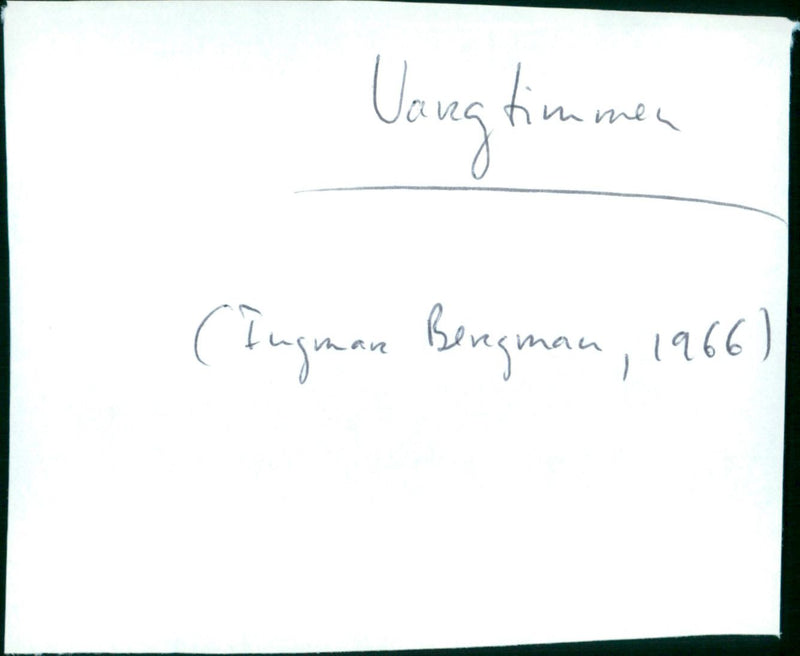 Vargtimmen
(Ingmar Bergman, 1966)